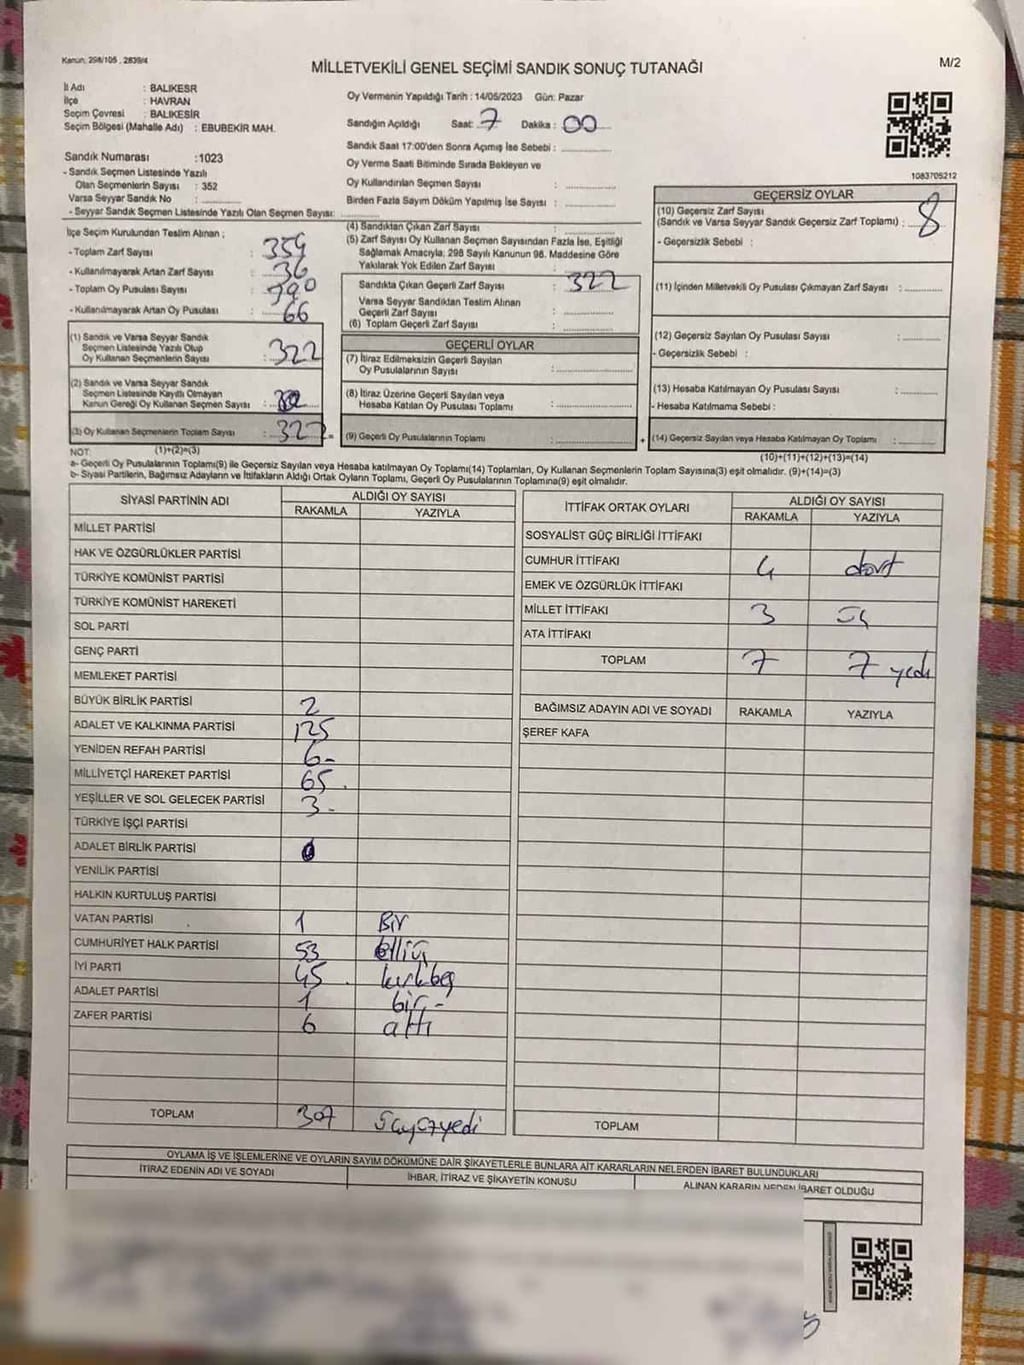 Kanun: 298/105 , 2839/4
M/2
MİLLETVEKİLİ GENEL SEÇİMİ SANDIK SONUÇ TUTANAĞI
İl Adı : BALIKESR
İlçe : HAVRAN
Seçim Çevresi : BALIKESİR
Seçim Bölgesi (Mahalle Adı) : EBUBEKİR MAH.
Sandık Numarası :1023
- Sandık Seçmen Listesinde Yazılı
Olan Seçmenlerin Sayısı : 352
Varsa Seyyar Sandık No :
- Seyyar Sandık Seçmen Listesinde Yazılı Olan Seçmen Sayısı:
İlçe Seçim Kurulundan Teslim Alınan ;
- Toplam Zarf Sayısı : 359
- Kullanılmayarak Artan Zarf Sayısı : 36
- Toplam Oy Pusulası Sayısı : 390
- Kullanılmayarak Artan Oy Pusulası : 66
(1) Sandık ve Varsa Seyyar Sandık
Seçmen Listesinde Yazılı Olup
Oy Kullanan Seçmenlerin Sayısı : 322
(2) Sandık ve Varsa Seyyar Sandık
Seçmen Listesinde Kayıtlı Olmayan
Kanun Gereği Oy Kullanan Seçmen Sayısı :
(3) Oy Kullanan Seçmenlerin Toplam Sayısı : 322
=
Oy Vermenin Yapıldığı Tarih : 14/05/2023 Gün: Pazar
Sandığın Açıldığı Saat: 7 Dakika : 00
Sandık Saat 17:00'den Sonra Açımış İse Sebebi :
Oy Verme Saati Bitiminde Sırada Bekleyen ve
Oy Kullandırılan Seçmen Sayısı :
Birden Fazla Sayım Döküm Yapılmış İse Sayısı :
(4) Sandıktan Çıkan Zarf Sayısı :
(5) Zarf Sayısı Oy Kullanan Seçmen Sayısından Fazla İse, Eşitliği
Sağlamak Amacıyla; 298 Sayılı Kanunun 98. Maddesine Göre
Yakılarak Yok Edilen Zarf Sayısı :
Sandıkta Çıkan Geçerli Zarf Sayısı : 322
Varsa Seyyar Sandıktan Teslim Alınan
Geçerli Zarf Sayısı :
(6) Toplam Geçerli Zarf Sayısı :
GEÇERLİ OYLAR
(7) İtiraz Edilmeksizin Geçerli Sayılan
Oy Pusulalarının Sayısı :
(8) İtiraz Üzerine Geçerli Sayılan veya
Hesaba Katılan Oy Pusulası Toplamı :
(9) Geçerli Oy Pusulalarının Toplamı :
+
1083705212
GEÇERSİZ OYLAR
(10) Geçersiz Zarf Sayısı
(Sandık ve Varsa Seyyar Sandık Geçersiz Zarf Toplamı) : 8
- Geçersizlik Sebebi :
(11) İçinden Milletvekili Oy Pusulası Çıkmayan Zarf Sayısı :
(12) Geçersiz Sayılan Oy Pusulası Sayısı :
- Geçersizlik Sebebi :
(13) Hesaba Katılmayan Oy Pusulası Sayısı :
- Hesaba Katılmama Sebebi :
(14) Geçersiz Sayılan veya Hesaba Katılmayan Oy Toplamı :
NOT: (1)+(2)=(3)
(10)+(11)+(12)+(13)=(14)
a- Geçerli Oy Pusulalarının Toplamı(9) ile Geçersiz Sayılan veya Hesaba katılmayan Oy Toplamı(14) Toplamları, Oy Kullanan Seçmenlerin Toplam Sayısına(3) eşit olmalıdır. (9)+(14)=(3)
b- Siyasi Partilerin, Bağımsız Adayların ve İttifakların Aldığı Ortak Oyların Toplamı, Geçerli Oy Pusulalarının Toplamına(9) eşit olmalıdır.
SİYASİ PARTİNİN ADI ALDIĞI OY SAYISI
RAKAMLA YAZIYLA
MİLLET PARTİSİ
HAK VE ÖZGÜRLÜKLER PARTİSİ
TÜRKİYE KOMÜNİST PARTİSİ
TÜRKİYE KOMÜNİST HAREKETİ
SOL PARTİ
GENÇ PARTİ
MEMLEKET PARTİSİ
BÜYÜK BİRLİK PARTİSİ 2
ADALET VE KALKINMA PARTİSİ 125
YENİDEN REFAH PARTİSİ 6-
MİLLİYETÇİ HAREKET PARTİSİ 65.
YEŞİLLER VE SOL GELECEK PARTİSİ 3-
TÜRKİYE İŞÇİ PARTİSİ
ADALET BİRLİK PARTİSİ
YENİLİK PARTİSİ
HALKIN KURTULUŞ PARTİSİ
VATAN PARTİSİ 1 Bir
CUMHURİYET HALK PARTİSİ 53 elliüç
İYİ PARTİ 45. kırkbeş
ADALET PARTİSİ 1 bir-
ZAFER PARTİSİ 6 altı
TOPLAM 307 üçyüzyedi
İTTİFAK ORTAK OYLARI ALDIĞI OY SAYISI
RAKAMLA YAZIYLA
SOSYALİST GÜÇ BİRLİĞİ İTTİFAKI
CUMHUR İTTİFAKI 4 dört
EMEK VE ÖZGÜRLÜK İTTİFAKI
MİLLET İTTİFAKI 3 üç
ATA İTTİFAKI
TOPLAM 7 7 yedi
BAĞIMSIZ ADAYIN ADI VE SOYADI RAKAMLA YAZIYLA
ŞEREF KAFA
TOPLAM
OYLAMA İŞ VE İŞLEMLERİNE VE OYLARIN SAYIM DÖKÜMÜNE DAİR ŞİKAYETLERLE BUNLARA AİT KARARLARIN NELERDEN İBARET BULUNDUKLARI
İTİRAZ EDENİN ADI VE SOYADI İHBAR, İTİRAZ VE ŞİKAYETİN KONUSU ALINAN KARARIN NEDEN İBARET OLDUĞU